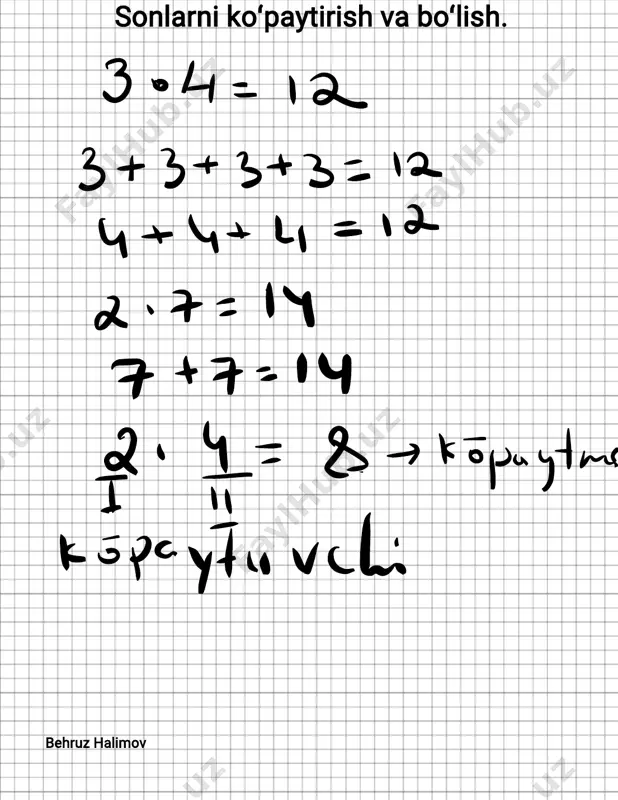 Sonlarni ko‘paytirish va bo‘lish.
3 • 4 = 12
3 + 3 + 3 + 3 = 12
4 + 4 + 4 = 12
2 · 7 = 14
7 + 7 = 14
2 · 4 = 8 → kōpaytma
I II
kōpaytiuvchi
Behruz Halimov
FaylHub.uz